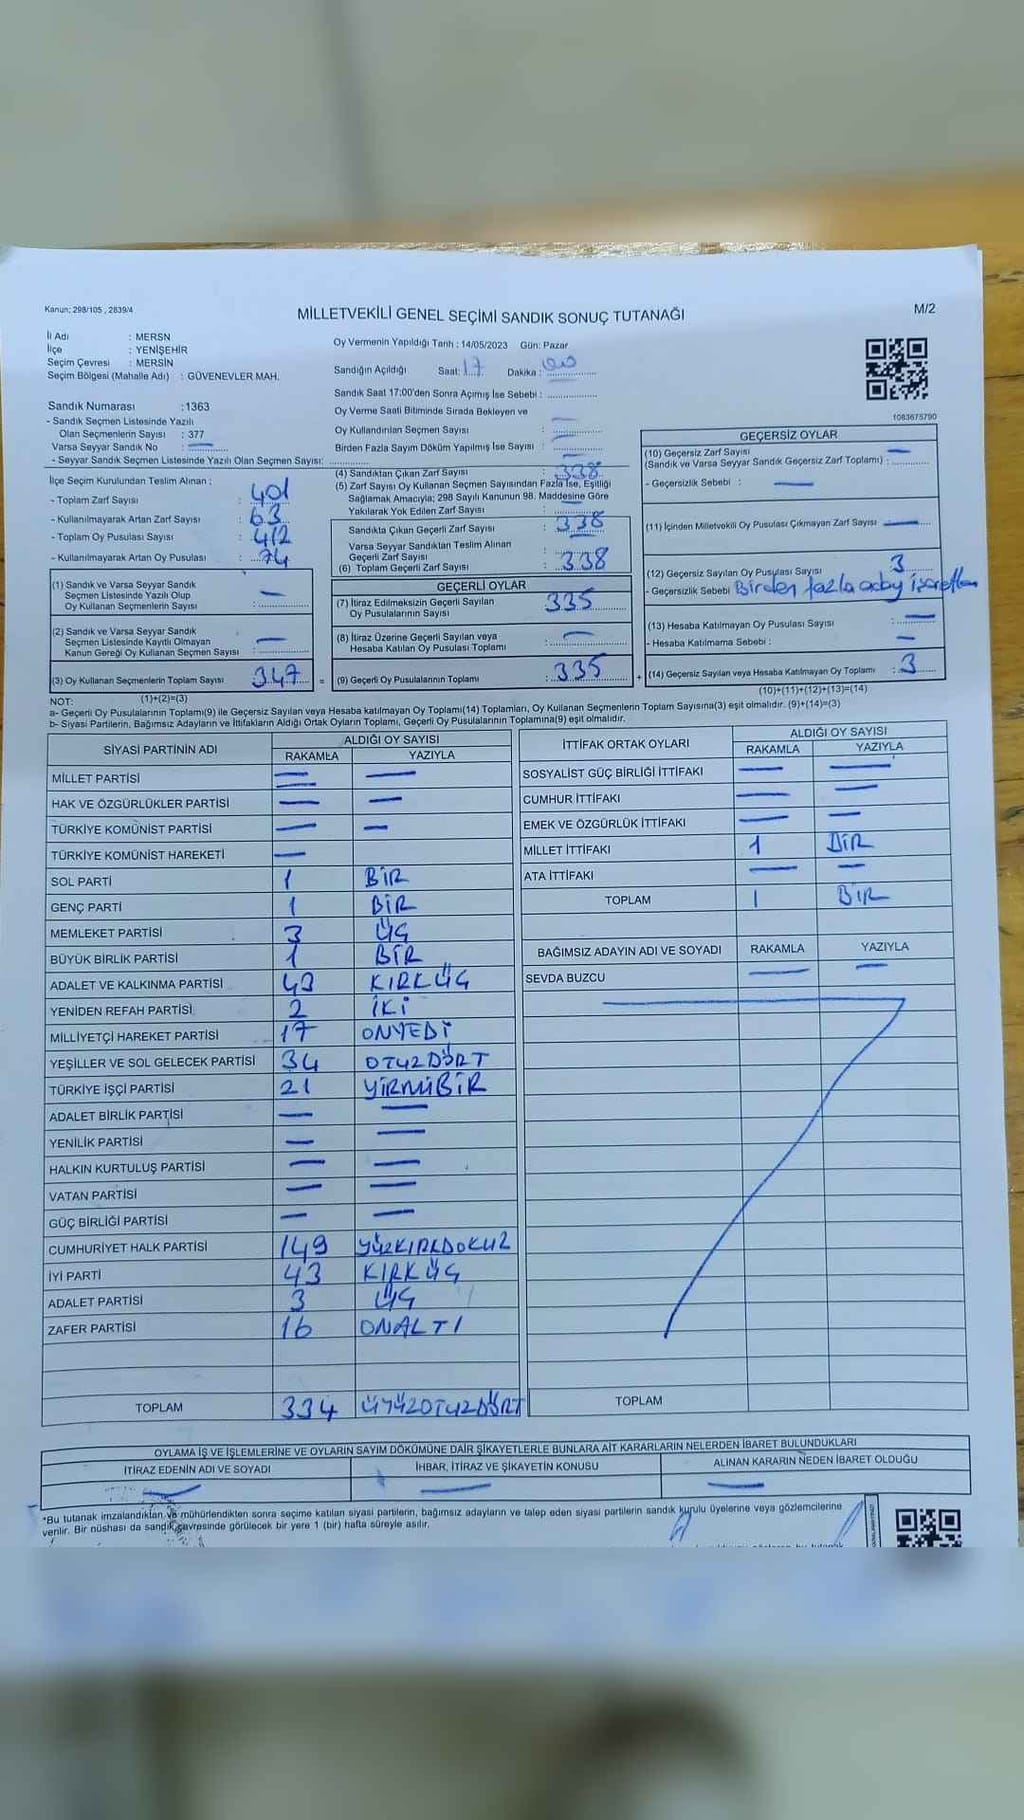 Kanun: 298/105 , 2839/4
MİLLETVEKİLİ GENEL SEÇİMİ SANDIK SONUÇ TUTANAĞI
M/2
İl Adı : MERSN
İlçe : YENİŞEHİR
Seçim Çevresi : MERSİN
Seçim Bölgesi (Mahalle Adı) : GÜVENEVLER MAH.
Sandık Numarası :1363
- Sandık Seçmen Listesinde Yazılı
Olan Seçmenlerin Sayısı : 377
Varsa Seyyar Sandık No : —
- Seyyar Sandık Seçmen Listesinde Yazılı Olan Seçmen Sayısı:
İlçe Seçim Kurulundan Teslim Alınan :
- Toplam Zarf Sayısı : 401
- Kullanılmayarak Artan Zarf Sayısı : 63
- Toplam Oy Pusulası Sayısı : 412
- Kullanılmayarak Artan Oy Pusulası : 74
(1) Sandık ve Varsa Seyyar Sandık
Seçmen Listesinde Yazılı Olup
Oy Kullanan Seçmenlerin Sayısı : —
(2) Sandık ve Varsa Seyyar Sandık
Seçmen Listesinde Kayıtlı Olmayan
Kanun Gereği Oy Kullanan Seçmen Sayısı : —
(3) Oy Kullanan Seçmenlerin Toplam Sayısı 347 =
(1)+(2)=(3)
Oy Vermenin Yapıldığı Tarih : 14/05/2023 Gün: Pazar
Sandığın Açıldığı Saat: 17 Dakika : 00
Sandık Saat 17:00'den Sonra Açımış İse Sebebi :
Oy Verme Saati Bitiminde Sırada Bekleyen ve
Oy Kullandırılan Seçmen Sayısı : —
Birden Fazla Sayım Döküm Yapılmış İse Sayısı : —
(4) Sandıktan Çıkan Zarf Sayısı : 338
(5) Zarf Sayısı Oy Kullanan Seçmen Sayısından Fazla İse, Eşitliği
Sağlamak Amacıyla; 298 Sayılı Kanunun 98. Maddesine Göre
Yakılarak Yok Edilen Zarf Sayısı : —
Sandıkta Çıkan Geçerli Zarf Sayısı : 338
Varsa Seyyar Sandıktan Teslim Alınan
Geçerli Zarf Sayısı : —
(6) Toplam Geçerli Zarf Sayısı : 338
GEÇERLİ OYLAR
(7) İtiraz Edilmeksizin Geçerli Sayılan
Oy Pusulalarının Sayısı : 335
(8) İtiraz Üzerine Geçerli Sayılan veya
Hesaba Katılan Oy Pusulası Toplamı : —
(9) Geçerli Oy Pusulalarının Toplamı : 335 +
1083675790
GEÇERSİZ OYLAR
(10) Geçersiz Zarf Sayısı
(Sandık ve Varsa Seyyar Sandık Geçersiz Zarf Toplamı) : —
- Geçersizlik Sebebi : —
(11) İçinden Milletvekili Oy Pusulası Çıkmayan Zarf Sayısı : —
(12) Geçersiz Sayılan Oy Pusulası Sayısı : 3
- Geçersizlik Sebebi Birden fazla aday
(13) Hesaba Katılmayan Oy Pusulası Sayısı : —
- Hesaba Katılmama Sebebi : —
(14) Geçersiz Sayılan veya Hesaba Katılmayan Oy Toplamı : 3
(10)+(11)+(12)+(13)=(14)
NOT:
a- Geçerli Oy Pusulalarının Toplamı(9) ile Geçersiz Sayılan veya hesaba katılmayan Oy Toplamı(14) Toplamları, Oy Kullanan Seçmenlerin Toplam Sayısına(3) eşit olmalıdır. (9)+(14)=(3)
b- Siyasi Partilerin, Bağımsız Adayların ve İttifakların Aldığı Ortak Oyların Toplamı, Geçerli Oy Pusulalarının Toplamına(9) eşit olmalıdır.
SİYASİ PARTİNİN ADI ALDIĞI OY SAYISI
RAKAMLA YAZIYLA
MİLLET PARTİSİ — —
HAK VE ÖZGÜRLÜKLER PARTİSİ — —
TÜRKİYE KOMÜNİST PARTİSİ — —
TÜRKİYE KOMÜNİST HAREKETİ —
SOL PARTİ 1 BİR
GENÇ PARTİ 1 BİR
MEMLEKET PARTİSİ 3 ÜÇ
BÜYÜK BİRLİK PARTİSİ 1 BİR
ADALET VE KALKINMA PARTİSİ 43 KIRKÜÇ
YENİDEN REFAH PARTİSİ 2 İKİ
MİLLİYETÇİ HAREKET PARTİSİ 17 ONYEDİ
YEŞİLLER VE SOL GELECEK PARTİSİ 34 OTUZDÖRT
TÜRKİYE İŞÇİ PARTİSİ 21 YİRMİBİR
ADALET BİRLİK PARTİSİ — —
YENİLİK PARTİSİ — —
HALKIN KURTULUŞ PARTİSİ — —
VATAN PARTİSİ — —
GÜÇ BİRLİĞİ PARTİSİ — —
CUMHURİYET HALK PARTİSİ 149 YÜZKIRKDOKUZ
İYİ PARTİ 43 KIRKÜÇ
ADALET PARTİSİ 3 ÜÇ
ZAFER PARTİSİ 16 ONALTI
TOPLAM 334 ÜÇYÜZOTUZDÖRT
İTTİFAK ORTAK OYLARI ALDIĞI OY SAYISI
RAKAMLA YAZIYLA
SOSYALİST GÜÇ BİRLİĞİ İTTİFAKI — —
CUMHUR İTTİFAKI — —
EMEK VE ÖZGÜRLÜK İTTİFAKI — —
MİLLET İTTİFAKI 1 BİR
ATA İTTİFAKI — —
TOPLAM 1 BİR
BAĞIMSIZ ADAYIN ADI VE SOYADI RAKAMLA YAZIYLA
SEVDA BUZCU — —
TOPLAM
OYLAMA İŞ VE İŞLEMLERİNE VE OYLARIN SAYIM DÖKÜMÜNE DAİR ŞİKAYETLERLE BUNLARA AİT KARARLARIN NELERDEN İBARET BULUNDUKLARI
İTİRAZ EDENİN ADI VE SOYADI İHBAR, İTİRAZ VE ŞİKAYETİN KONUSU ALINAN KARARIN NEDEN İBARET OLDUĞU
— — —
*Bu tutanak imzalandıktan ve mühürlendikten sonra seçime katılan siyasi partilerin, bağımsız adayların ve talep eden siyasi partilerin sandık kurulu üyelerine veya gözlemcilerine
verilir. Bir nüshası da sandık çevresinde görülecek bir yere 1 (bir) hafta süreyle asılır.